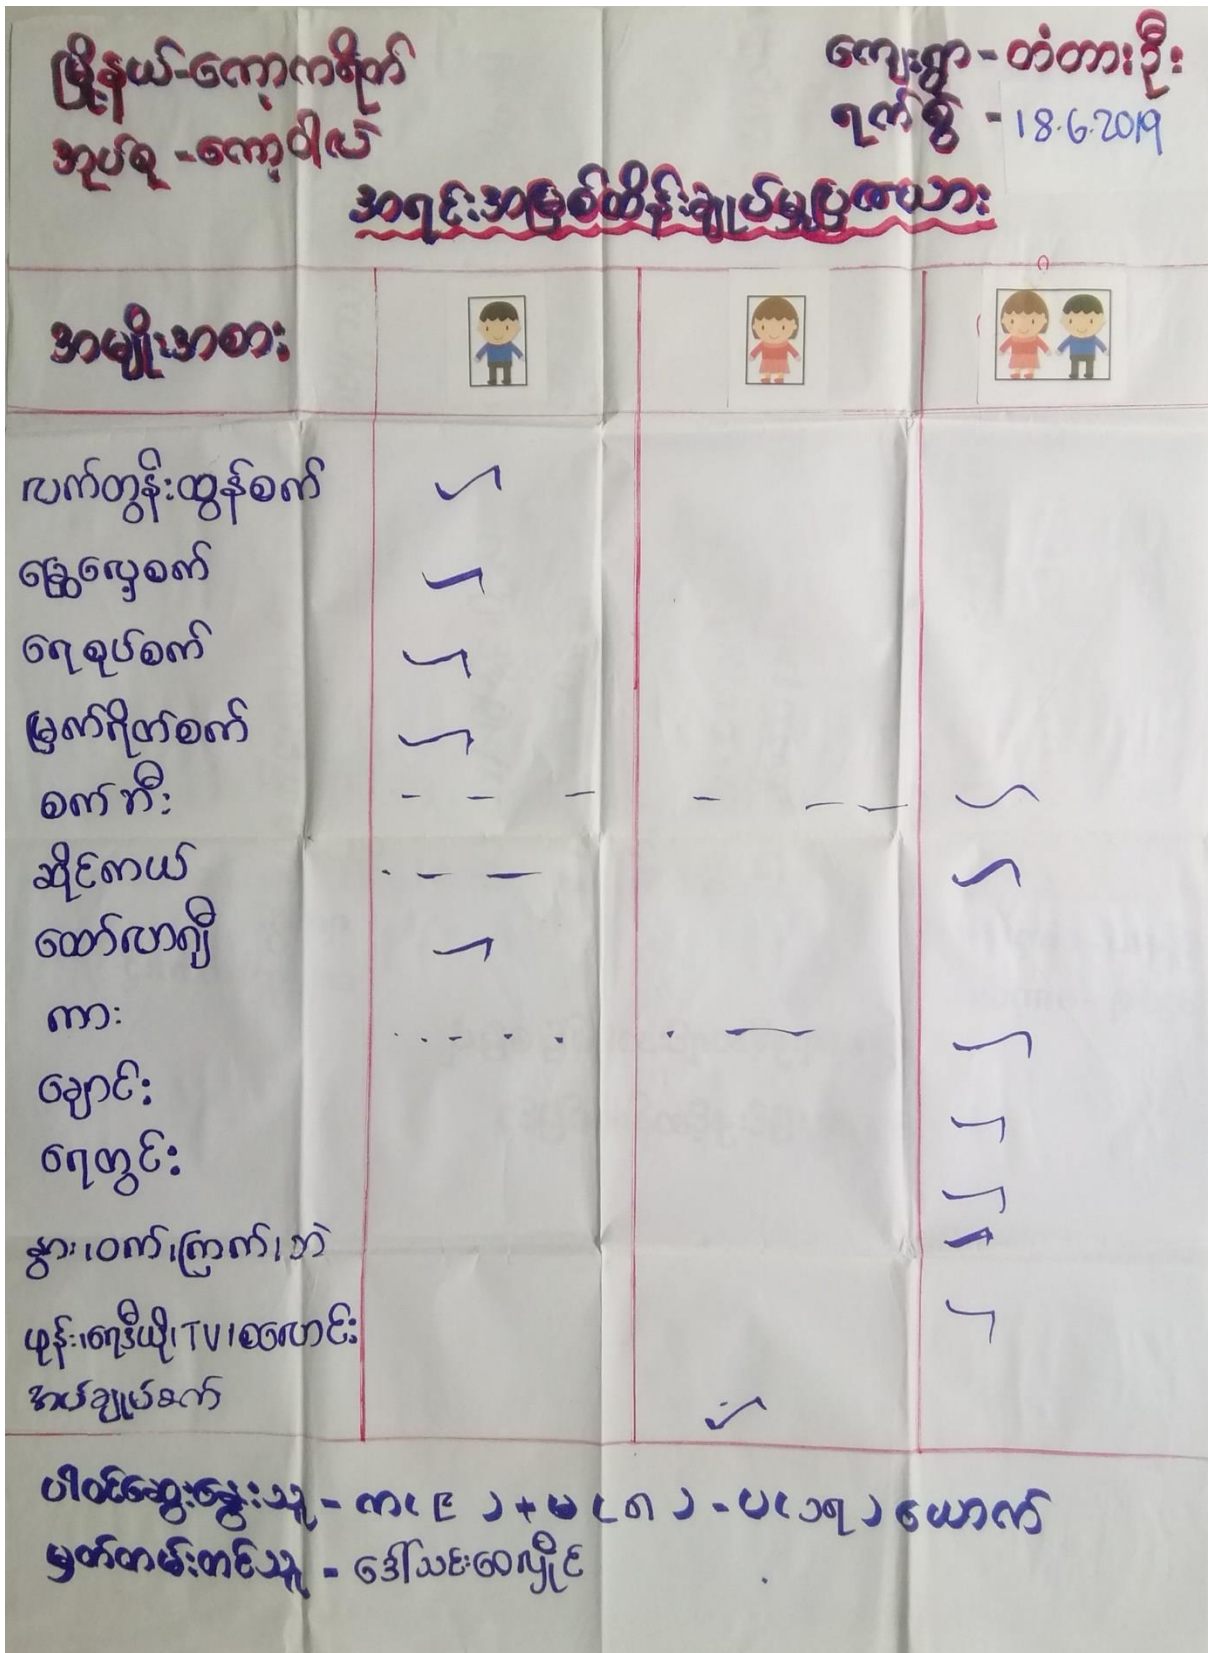 မြို့နယ်-ကော့ကရိတ်
ကျေးရွာ - တံတားဦး
အုပ်စု - ကော့ဝါလဲ
ရက်စွဲ - 18.6.2019
အရင်းအမြစ်ထိန်းချုပ်မှုပြဇယား
အမျိုးအစား
လက်တွန်းထွန်စက်
ခြွေလှေ့စက်
ရေစုပ်စက်
မြက်ရိတ်စက်
စက်ဘီး
ဆိုင်ကယ်
ထော်လာဂျီ
ကား
ချောင်း
ရေတွင်း
နွား၊ဝက်၊ကြက်၊ဘဲ
ဖုန်း၊ရေဒီယို၊TV၊စလောင်း
အပ်ချုပ်စက်
ပါဝင်ဆွေးနွေးသူ - က(၉) + မ(၈) - ပ(၁၇)ယောက်
မှတ်တမ်းတင်သူ - ဒေါ်သင်းဝေလှိုင်